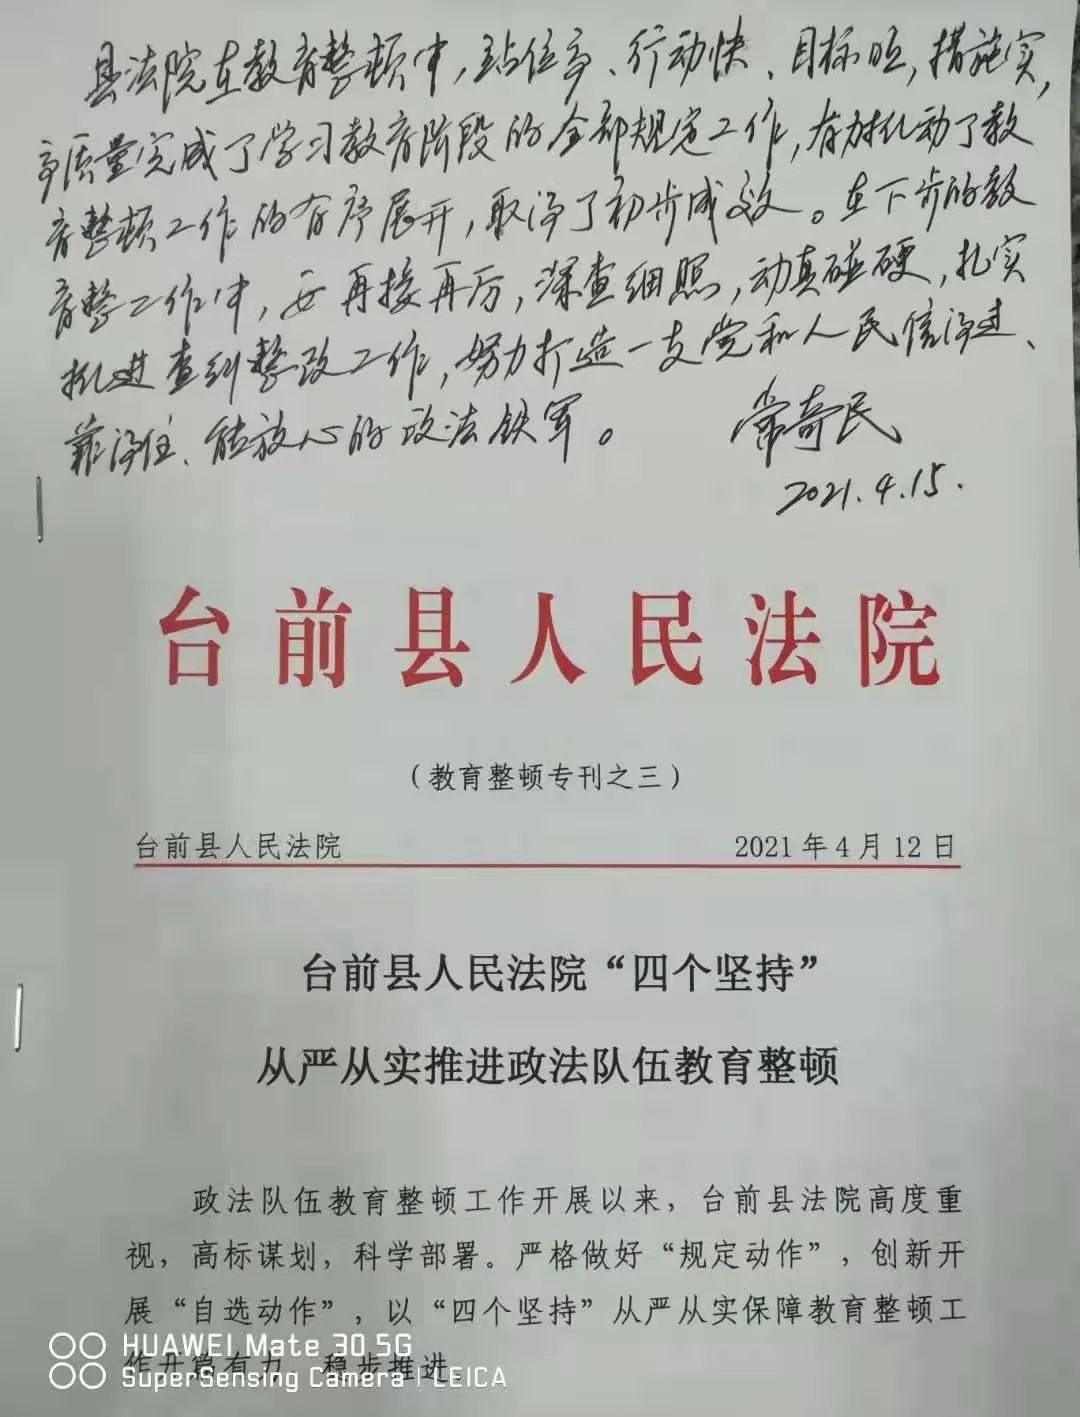 县法院在教育整顿中，站位高、行动快、目标明，措施实，
高质量完成了学习教育阶段的全部规定工作，有力推动了教
育整顿工作的有序展开，取得了初步成效。在下步的教
育整工作中，要再接再厉，深查细照，动真碰硬，扎实
推进查纠整改工作，努力打造一支党和人民信得过、
靠得住、能放心的政法铁军。 常奇民
2021.4.15.
台前县人民法院
（教育整顿专刊之三）
台前县人民法院 2021年4月12日
台前县人民法院“四个坚持”
从严从实推进政法队伍教育整顿
政法队伍教育整顿工作开展以来，台前县法院高度重
视，高标谋划，科学部署。严格做好“规定动作”，创新开
展“自选动作”，以“四个坚持”从严从实保障教育整顿工
作开篇有力、稳步推进。
HUAWEI Mate 30 5G
SuperSensing Camera | LEICA